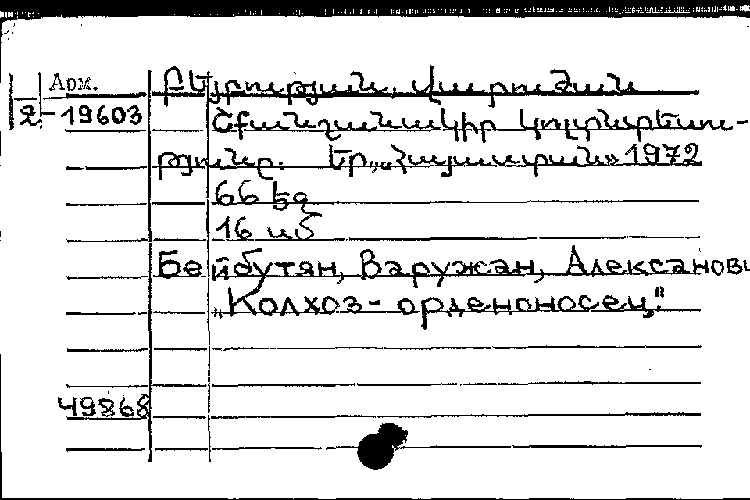 Арм.
2-19603
Բեյբության, Վարուժան
Շքանշանակիր կոլտնտեսու-
թյունը. Եր., «Հայաստան» 1972
66 էջ
16 սմ
Бейбутян, Варужан, Александ
"Колхоз- орденоносец."
49868